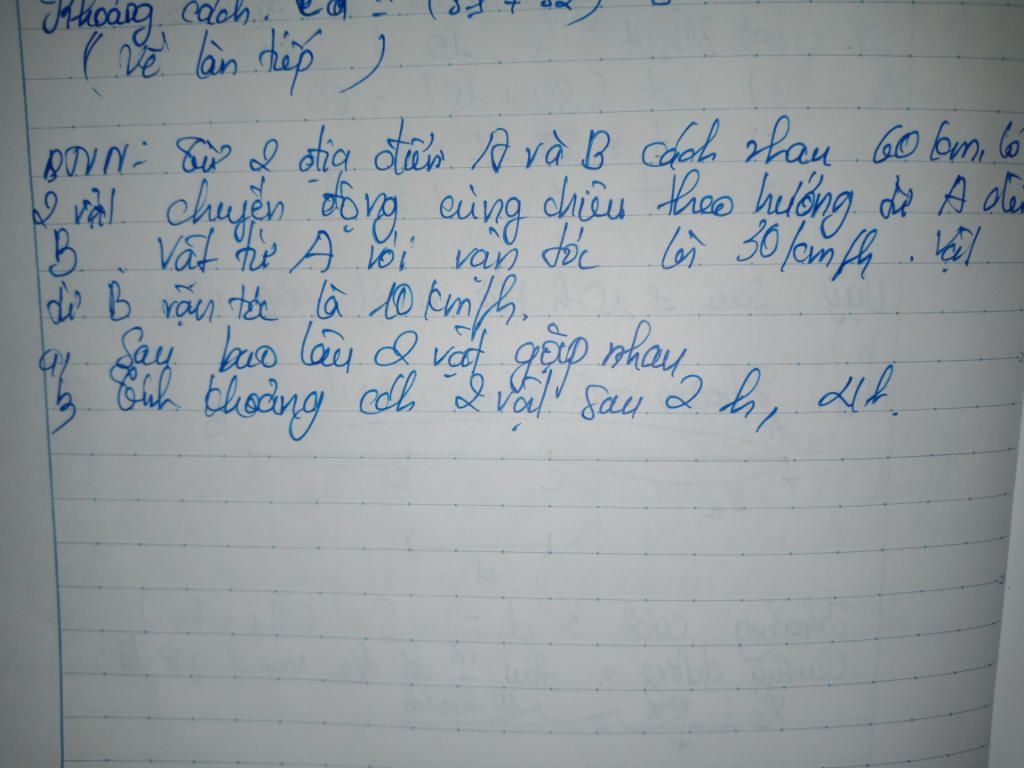 Khoảng cách.
( Vẽ làn tiếp )
BTVN: Từ 2 địa điểm A và B cách nhau 60 km. Có
2 vật chuyển động cùng chiều theo hướng từ A đến
B. Vật từ A với vận tốc là 30 km/h. Vật
từ B vận tốc là 10 km/h.
a, Sau bao lâu 2 vật gặp nhau
b, Tính khoảng cách 2 vật sau 2 h, 4h.